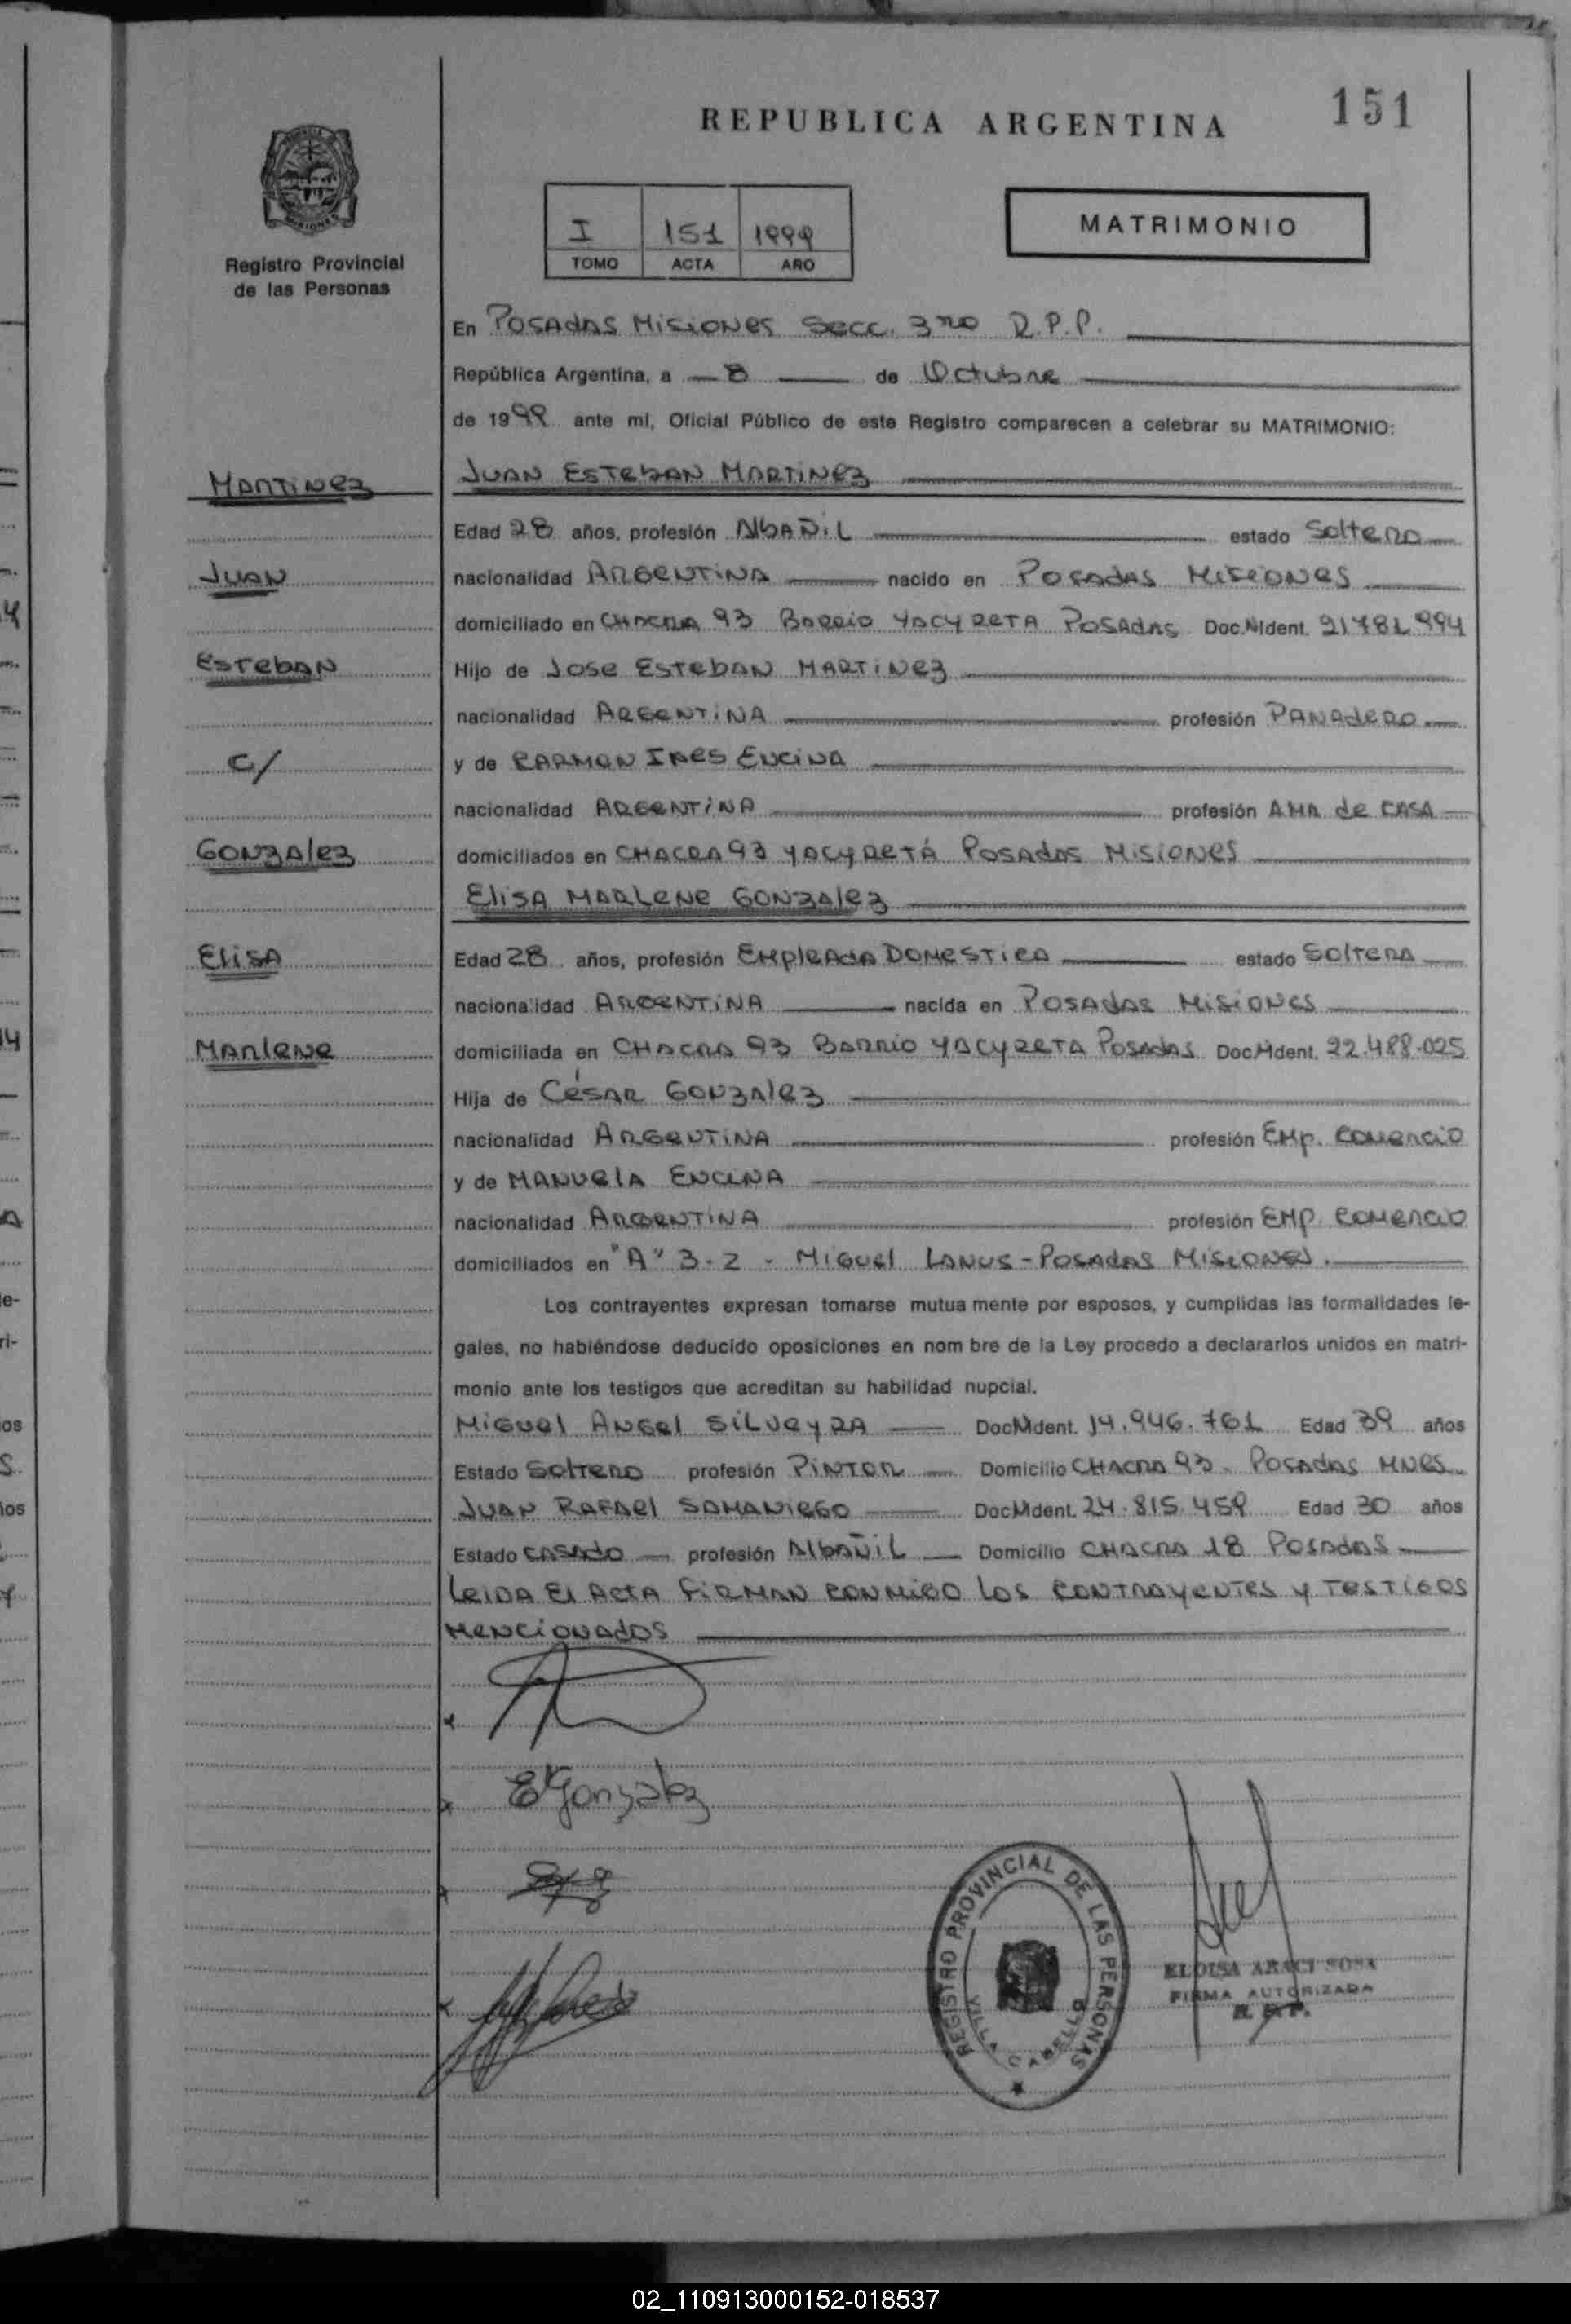 REPUBLICA ARGENTINA
151
Registro Provincial
de las Personas
I 151 1999
TOMO ACTA AÑO
MATRIMONIO
En POSADAS MISIONES SECC. 3ra R.P.P.
República Argentina, a 8 de Octubre
de 1999 ante mí, Oficial Público de este Registro comparecen a celebrar su MATRIMONIO:
MARTINEZ
JUAN ESTEBAN MARTINEZ
Edad 28 años, profesión ALBAÑIL estado Soltero
JUAN
nacionalidad ARGENTINA nacido en POSADAS MISIONES
domiciliado en CHACRA 93 BARRIO YACYRETA POSADAS Doc.N.Ident. 21.781.994
ESTEBAN
Hijo de JOSE ESTEBAN MARTINEZ
nacionalidad ARGENTINA profesión PANADERO
C/
y de CARMEN INES ENCINA
nacionalidad ARGENTINA profesión AMA de CASA
GONZALEZ
domiciliados en CHACRA 93 YACYRETÁ POSADAS MISIONES
ELISA MARLENE GONZALEZ
ELISA
Edad 28 años, profesión EMPLEADA DOMESTICA estado SOLTERA
nacionalidad ARGENTINA nacida en POSADAS MISIONES
MARLENE
domiciliada en CHACRA 93 BARRIO YACYRETA POSADAS Doc.N.Ident. 22.488.025
Hija de CÉSAR GONZALEZ
nacionalidad ARGENTINA profesión EMP. COMERCIO
y de MANUELA ENCINA
nacionalidad ARGENTINA profesión EMP. COMERCIO
domiciliados en "A" 3-2 - MIGUEL LANUS - POSADAS MISIONES.
Los contrayentes expresan tomarse mutua mente por esposos, y cumplidas las formalidades le-
gales, no habiéndose deducido oposiciones en nom bre de la Ley procedo a declararlos unidos en matri-
monio ante los testigos que acreditan su habilidad nupcial.
MIGUEL ANGEL SILVEYRA Doc.N.Ident. 14.946.761 Edad 39 años
Estado SOLTERO profesión PINTOR Domicilio CHACRA 93 - POSADAS MNES
JUAN RAFAEL SAMANIEGO Doc.N.Ident. 24.815.459 Edad 30 años
Estado CASADO profesión ALBAÑIL Domicilio CHACRA 18 POSADAS
LEIDA EL ACTA FIRMAN CONMIGO LOS CONTRAYENTES Y TESTIGOS
MENCIONADOS
EGonzalez
REGISTRO PROVINCIAL DE LAS PERSONAS
VILLA CABELLO
ELOISA ARACI SOSA
FIRMA AUTORIZADA
R. P. P.
02_110913000152-018537